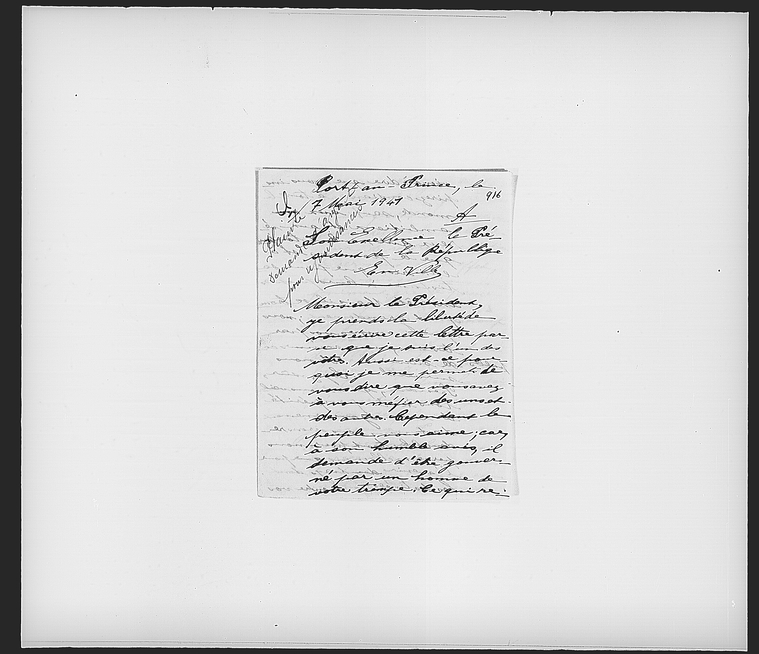 Port-au-Prince, le
916
7 Mai 1941
A
Son Excellence le Pré-
sident de la République
En Ville
Monsieur le Président,
je prends la liberté de
vous écrire cette lettre par-
ce que je suis l'un des
vôtres. Aussi est-ce pour-
quoi je me permets de
vous dire que vous avez
à vous méfier des uns et
des autres. Cependant le
peuple vous aime, car,
à son humble avis, il
demande d'être gouver-
né par un homme de
votre trempe. Ce qui re-
demande
pour